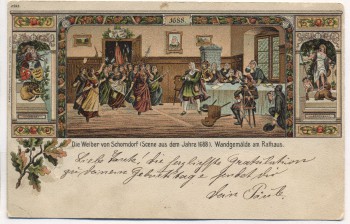 1688.
Die Weiber von Schorndorf (Scene aus dem Jahre 1688). Wandgemälde am Rathaus.
Liebe Tante, die herzlichste Gratulation
zu deinem Geburtstage sendet dir
dein Paul.